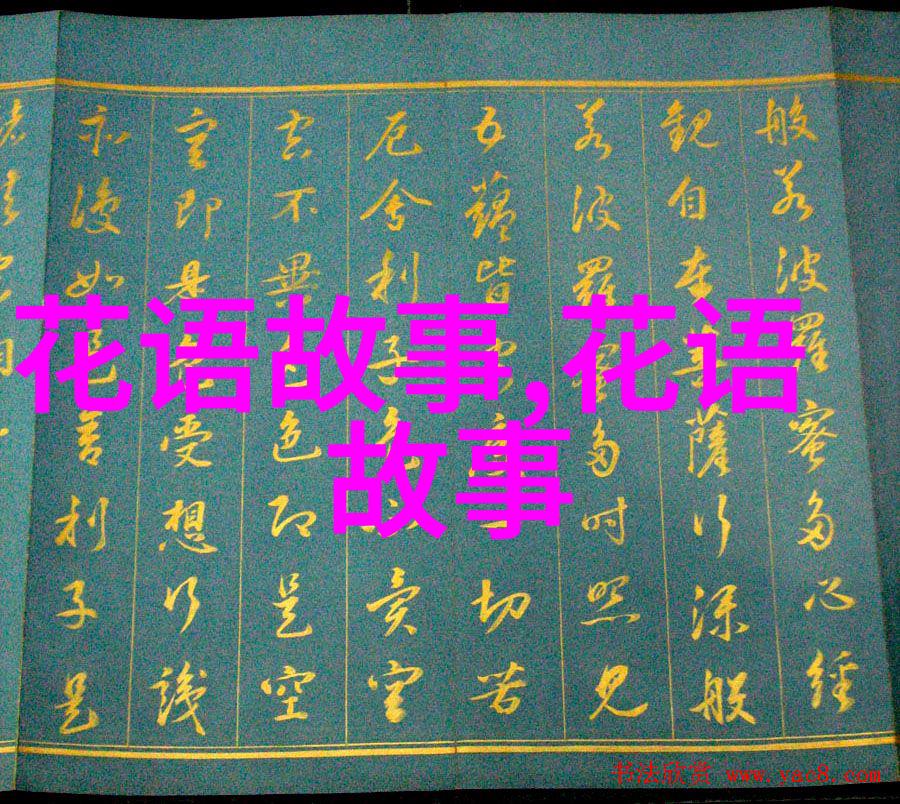 般若波羅蜜多心經
觀自在菩薩行深般
若波羅蜜多時照見
五蘊皆空度一切苦
厄舍利子色不異空
空不異色色即是空
空即是色受想行識
亦復如是舍利子是
花语故事,花语
故事
书法欣赏 www.yac8.com